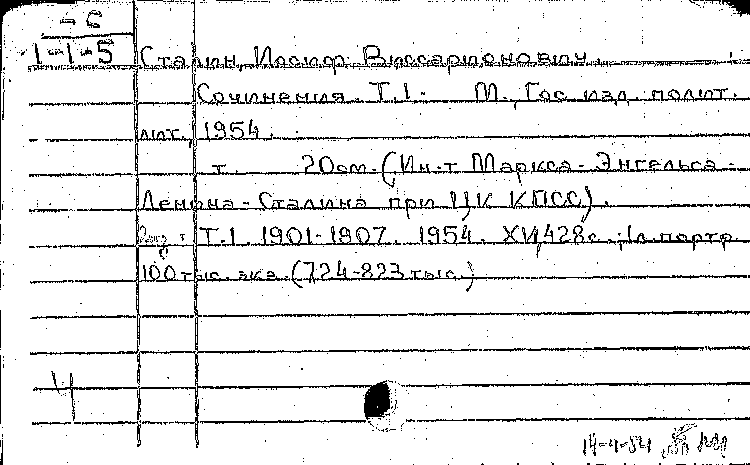 С
1-1-5
Сталин, Иосиф Виссарионович.
Сочинения. Т.1. М., Гос. изд. полит.
лит., 1954.
т. 20см. (Ин-т Маркса-Энгельса-
Ленина-Сталина при ЦК КПСС).
Т.1. 1901-1907. 1954. XVI, 428с., 1л. портр.
100 тыс. экз. (724-823 тыс.)
4
14-4-54